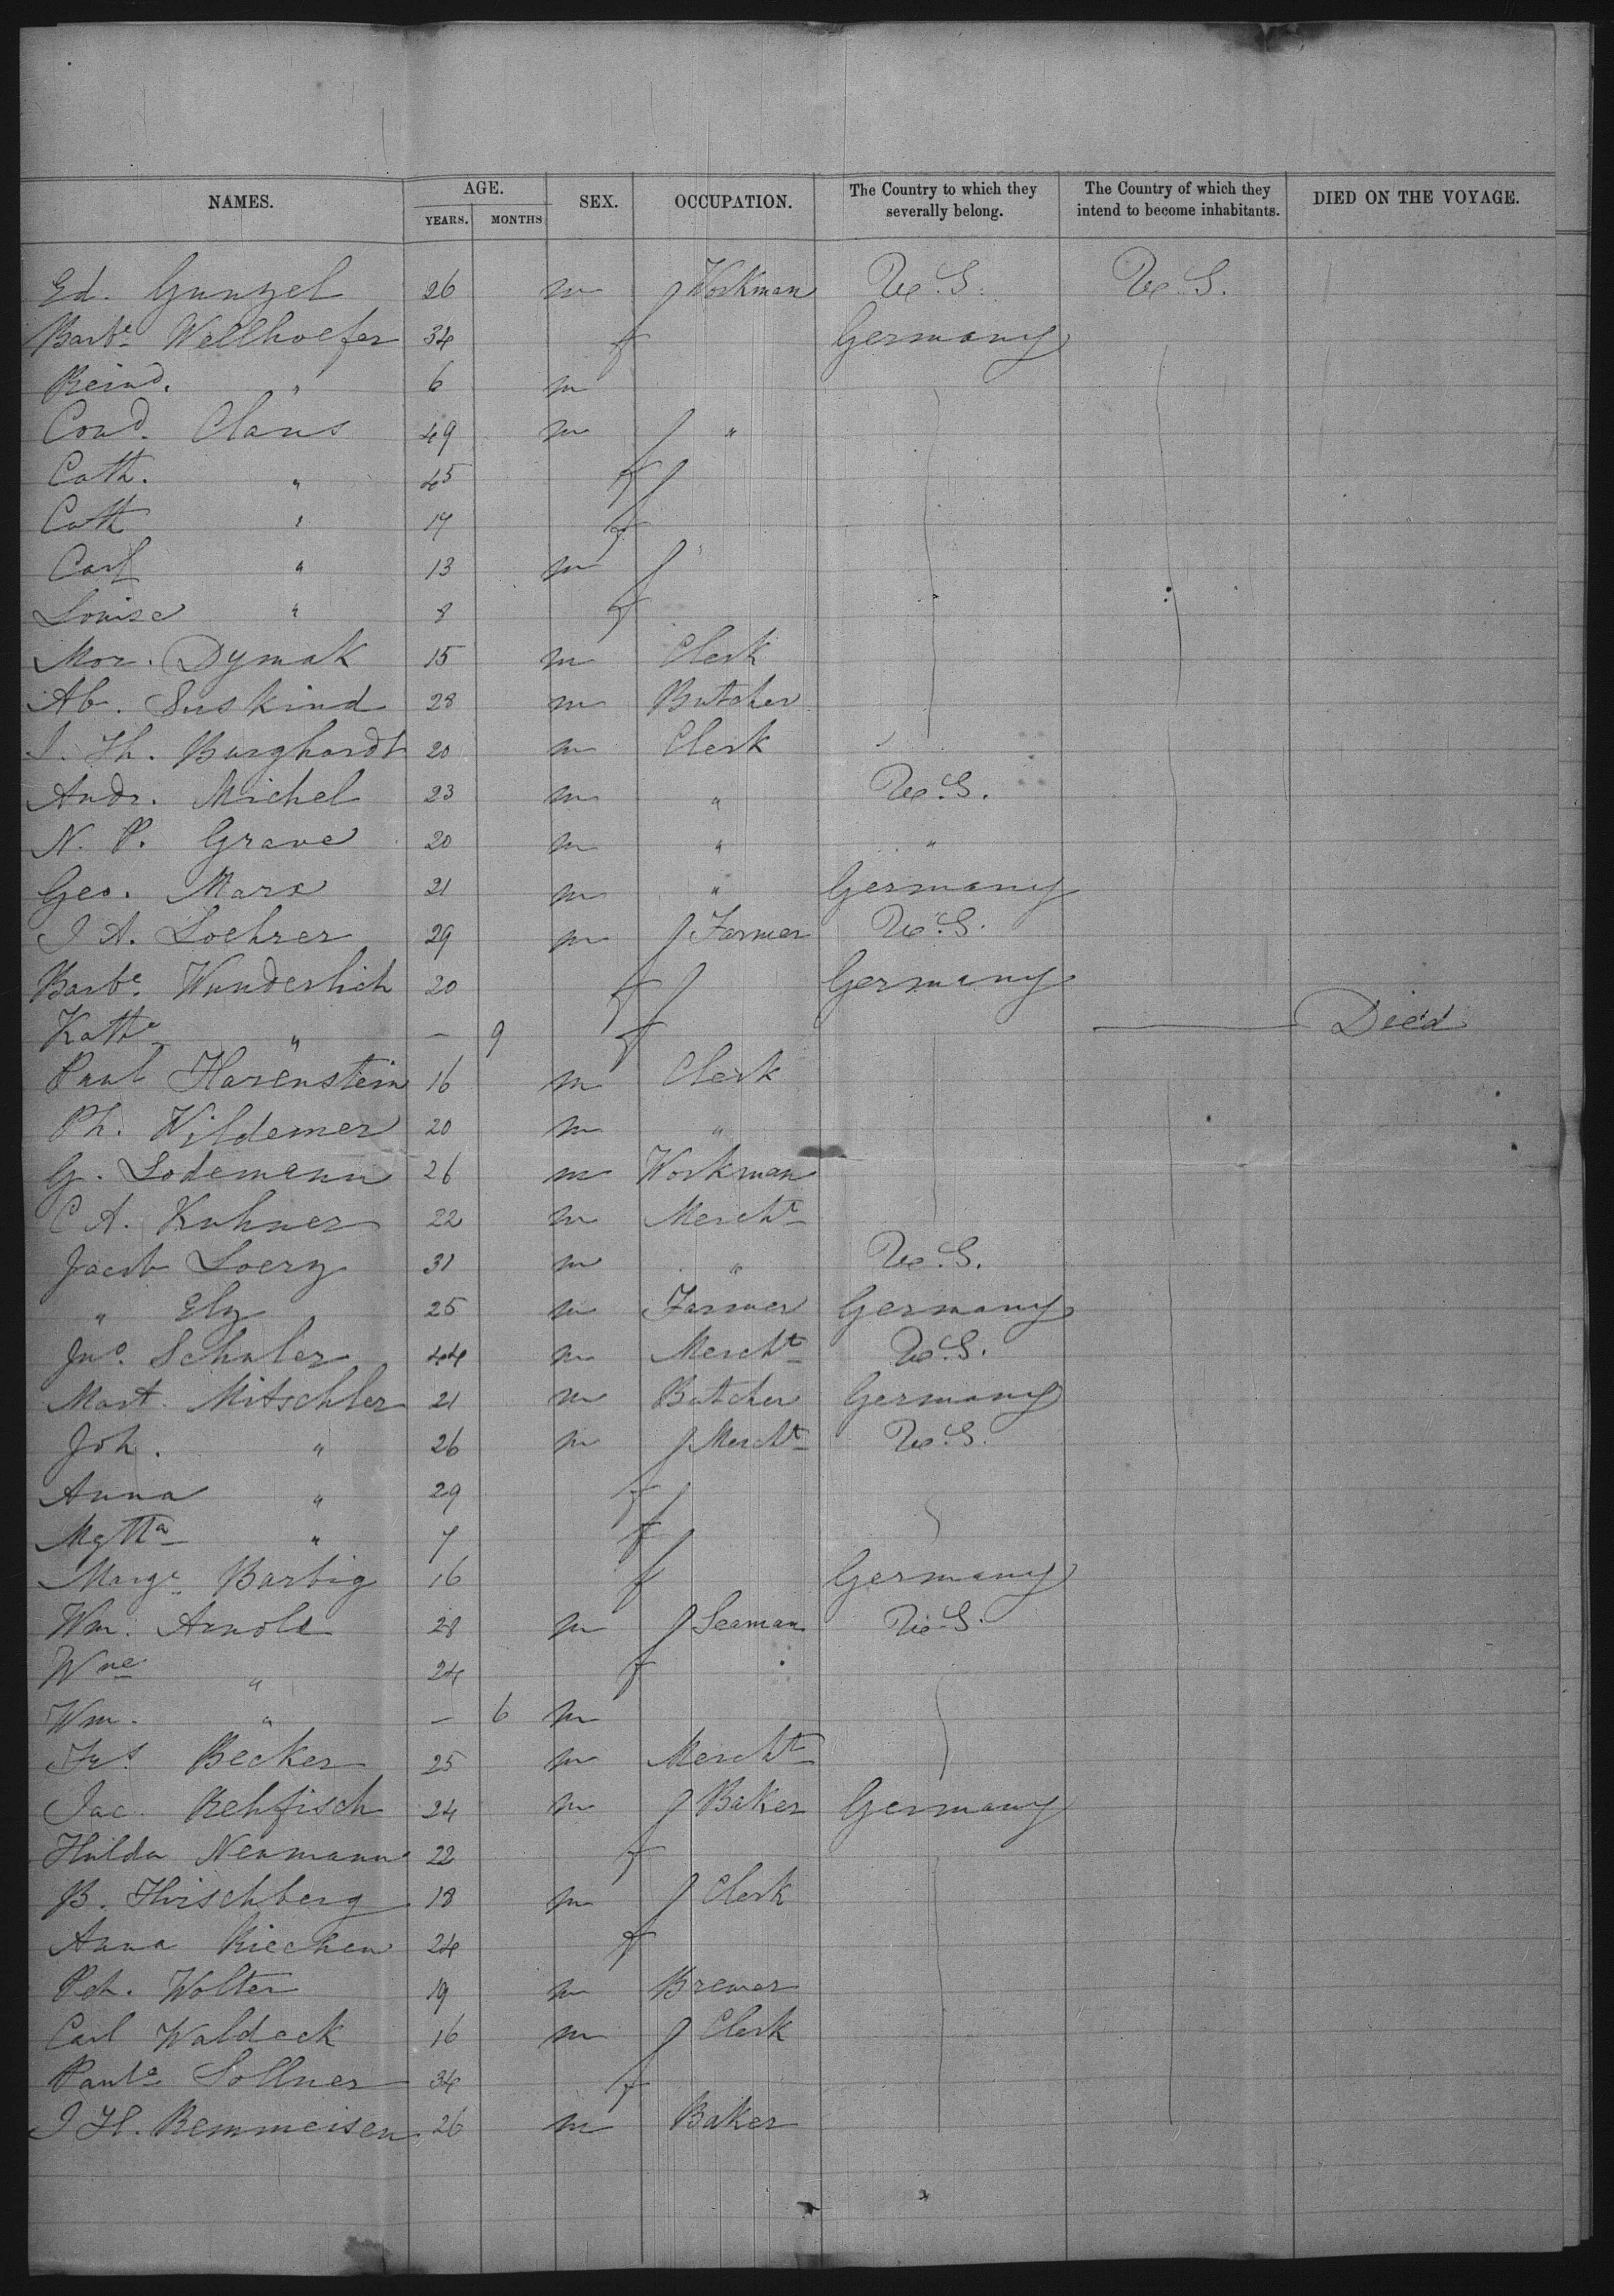 NAMES. AGE. YEARS. MONTHS SEX. OCCUPATION. The Country to which they severally belong. The Country of which they intend to become inhabitants. DIED ON THE VOYAGE.
Ed. Gunzel 26 m Workman U.S. U.S.
Barbe Wellhoefer 34 f Germany
Reind. " 6 m
Cond. Claus 49 m "
Cath. " 45 f
Cath " 17 f
Carl " 13 m "
Louise " 8 f
Mor. Dymak 15 m Clerk
Ab. Suskind 28 m Butcher
J. Th. Burghardt 20 m Clerk
Andr. Michel 23 m " U.S.
N. P. Grave 20 m " "
Geo. Marx 21 m " Germany
J A. Loehrer 29 m Farmer U.S.
Barbe Wunderlich 20 f Germany
Kathe " — 9 f Died
Paul Harenstein 16 m Clerk
Ph. Wildemer 20 m "
G. Lodemann 26 m Workman
C A. Kuhner 22 m Mercht
Jacob Loerz 31 m " U.S.
" Ely 25 m Farmer Germany
Jno. Schuler 44 m Mercht U.S.
Mart. Mitschler 21 m Butcher Germany
Joh. " 26 m Mercht U.S.
Anna " 29 f
Mgtha " 7 f
Marge Barbig 16 f Germany
Wm. Arnold 28 m Seaman U.S.
Wne " 24 f
Wm. " — 6 m
Frs Becker 25 m Mercht
Jac. Rehfisch 24 m Baker Germany
Hulda Neumann 22 f
B. Hirschberg 18 m Clerk
Anna Riecken 24 f
Pet. Wolter 19 m Brewer
Carl Waldeck 16 m Clerk
Paule Sollner 34 f
J H. Remmeisen 26 m Baker